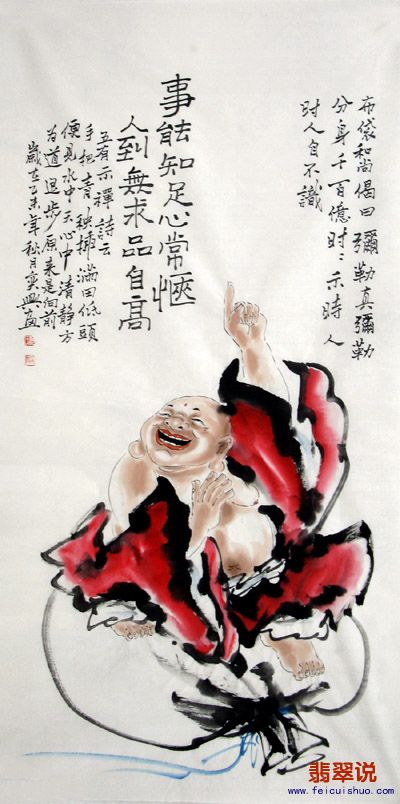 布袋和尚偈曰彌勒真彌勒
分身千百億时二示時人
时人自不識
事能知足心常愜
人到無求品自高
五有示禪詩云
手把青秧插滿田低頭
便見水中天心中清静方
为道退步原来是向前
歲在乙未年秋月
翡翠说
www.feicuishuo.com